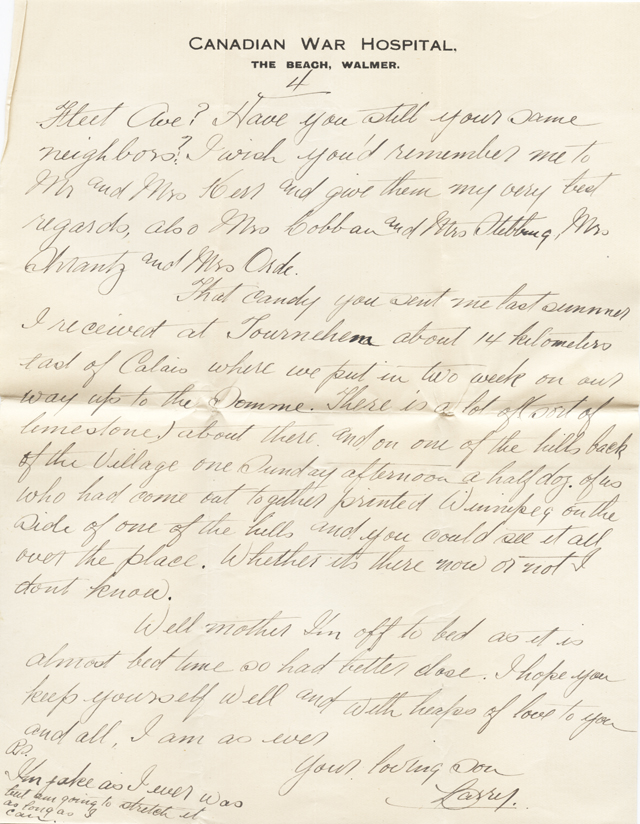 CANADIAN WAR HOSPITAL,
THE BEACH, WALMER.
4
Fleet Ave? Have you still your same
neighbors? I wish you'd remember me to
Mr and Mrs Kerr and give them my very best
regards, also Mrs Cobban and Mrs Stebbing, Mrs
Shrantz and Mrs Orde.
That candy you sent me last summer
I received at Tournehem about 14 kilometers
east of Calais where we put in two week on our
way up to the Somme. There is a lot of (sort of
limestone) about there and on one of the hills back
of the Village one Sunday afternoon a half doz. of us
who had come out together printed Winnipeg on the
side of one of the hills and you could see it all
over the place. Whether its there now or not I
dont know.
Well mother I'm off to bed as it is
almost bed time so had better close. I hope you
keep yourself well and with heaps of love to you
and all, I am as ever
Your loving son
Harry.
P.S.
I'm jake as I ever was
but am going to stretch it
as long as I
can.